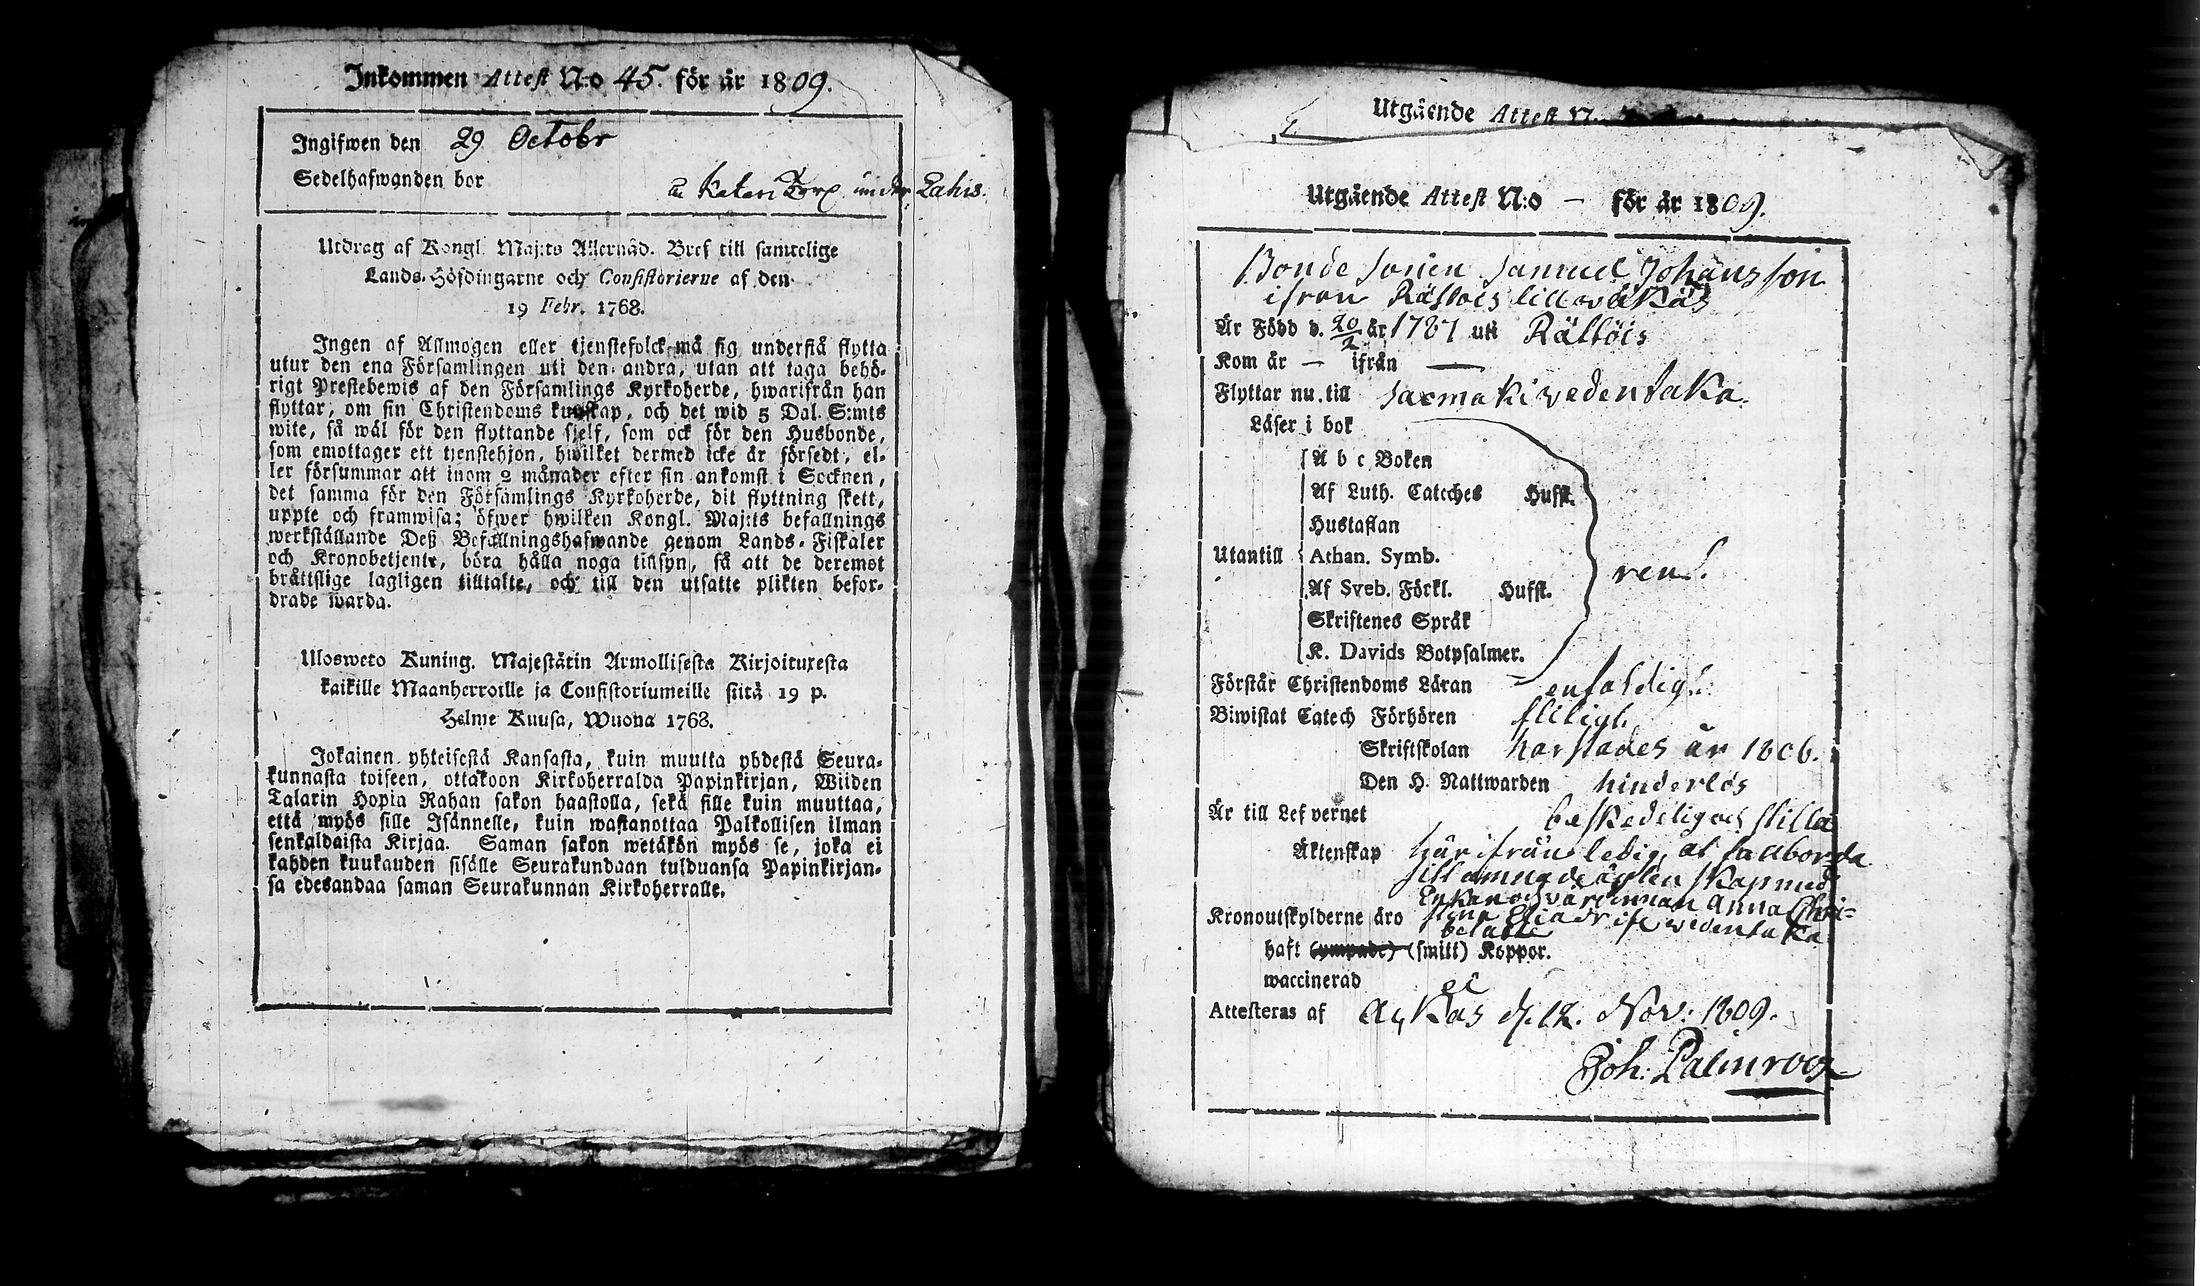 Inkommen Attest N:o 45. för år 1809.
Ingifwen den 29 Octobr
Sedelhafwanden bor Keteri Torp under Lahis.
Utdrag af Kongl. Maj:ts Allernåd. Bref till samtelige
Lands-Höfdingarne och Consistorierne af den
19 Febr. 1768.
Ingen af Allmogen eller tjenstefolck må sig understå flytta
utur den ena Församlingen uti den andra, utan att taga behö-
rigt Prestebewis af den Församlings Kyrkoherde, hwarifrån han
flyttar, om sin Christendoms kunskap, och det wid 5 Dal. S:mts
wite, så wäl för den flyttande sjelf, som ock för den Husbonde,
som emottager ett tjenstehjon, hwilket dermed icke är försedt, el-
ler försummar att inom 2 månader efter sin ankomst i Socknen,
det samma för den Församlings Kyrkoherde, dit flyttning skett,
uppte och framwisa; öfwer hwilken Kongl. Maj:ts befallnings
werkställande Deß Befallningshafwande genom Lands-Fiskaler
och Kronobetjente, böra hålla noga tillsyn, så att de deremot
bråttslige lagligen tilltalte, och till den utsatte plikten befor-
drade warda.
Ulosweto Kuning. Majestätin Armollisesta Kirjoituxesta
kaikille Maanherroille ja Consistoriumeille siitä 19 p.
Helme Kuusa, Wuona 1768.
Jokainen yhteisestä Kansasta, kuin muutta yhdestä Seura-
kunnasta toiseen, ottakoon Kirkoherralda Papinkirjan, Wiiden
Talarin Hopia Rahan sakon haastolla, sekä sille kuin muuttaa,
että myös sille Isännelle, kuin wastanottaa Palkollisen ilman
senkaldaista Kirjaa. Saman sakon wetäkön myös se, joka ei
kahden kuukauden sisälle Seurakundaan tulduansa Papinkirjan-
sa edesandaa saman Seurakunnan Kirkoherralle.
Utgående Attest N.
Utgående Attest N:o — för år 1809.
Bonde sonen Samuel Johansson
ifrån
Är Född d. 20/2 år 1787 uti
Kom år — ifrån —
Flyttar nu till
Läser i bok
A b c Boken
Af Luth. Cateches Husst.
Hustaflan
Utantill Athan. Symb.
Af Sveb. Förkl. Husst.
Skriftenes Språk
K. Davids Botpsalmer.
rent.
Förstår Christendoms Läran enfaldigt
Biwistat Catech Förhören flitigt
Skriftskolan år 1806.
Den H. Nattwarden hinderlös
Är till Lefvernet beskedelig och stilla
Äktenskap härifrån ledig at
ägtenskap med
Enkan och värdinnan Anna Chri-
Kronoutskylderne äro stina
betalte
haft (ympade) (smitt) Koppor.
waccinerad ej
Attesteras af d. 12. Nov. 1809.
Joh. Palmroos